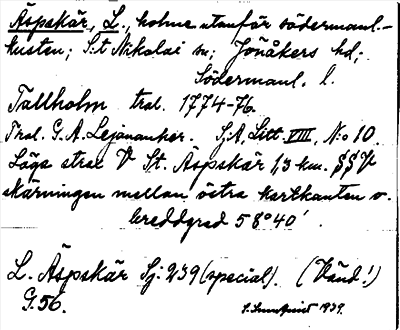 Äspskär, L., holme utanför södermanl.-
kusten; S:t Nikolai sn; Jönåkers hd;
Södermanl. l.
Tallholm trol. 1774-76.
Trol. G. A. Lejonanker. S.A, Litt. VIII, N:o 10.
Låga strax V St. Äspskär 1,3 km. SSV
skärningen mellan östra kartkanten o.
breddgrad 58°40'
L. Äspskär Sj: 239 (special). (Vänd!)
G. 56. 1939.